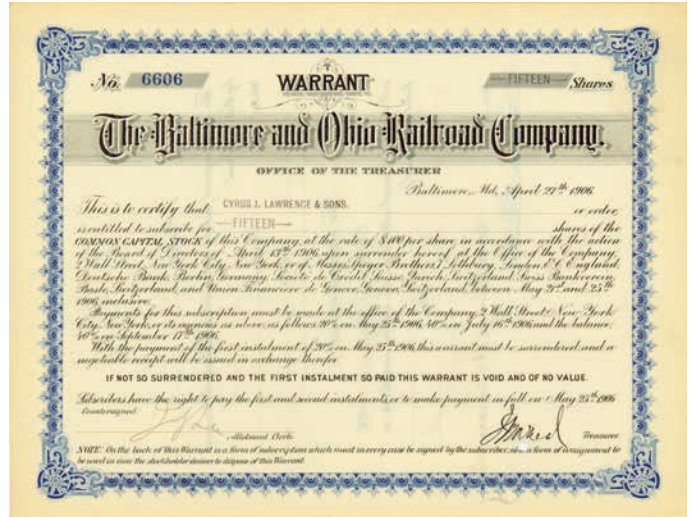 No. 6606 WARRANT FIFTEEN Shares
The Baltimore and Ohio Railroad Company.
OFFICE OF THE TREASURER
Baltimore, Md., April 27th 1906
This is to certify that CYRUS J. LAWRENCE & SONS. or order,
is entitled to subscribe for FIFTEEN shares of the
COMMON CAPITAL STOCK of this Company, at the rate of $100 per share in accordance with the action
of the Board of Directors of April 13th 1906, upon surrender hereof, at the Office of the Company,
2 Wall Street, New York City, New York, or of Messrs. Speyer Brothers, 7 Lothbury, London, E.C. England,
Deutsche Bank, Berlin, Germany, Societe de Credit Suisse, Zurich, Switzerland, Swiss Bankverein,
Basle, Switzerland, and Union Financiere de Geneve, Geneva, Switzerland, between May 21st and 25th
1906, inclusive.
Payments for this subscription must be made at the office of the Company, 2 Wall Street, New York
City, New York, or its agencies as above, as follows: 20% on May 25th 1906, 40% on July 16th 1906 and the balance,
40% on September 17th 1906.
With the payment of the first instalment of 20% on May 25th 1906 this warrant must be surrendered and a
negotiable receipt will be issued in exchange therefor.
IF NOT SO SURRENDERED AND THE FIRST INSTALMENT SO PAID THIS WARRANT IS VOID AND OF NO VALUE.
Subscribers have the right to pay the first and second instalments, or to make payment in full on May 25th 1906
Countersigned
Allotment Clerk. Treasurer
NOTE: On the back of this Warrant is a form of subscription which must in every case be signed by the subscriber, also a form of assignment to
be used in case the stockholder desires to dispose of this Warrant.